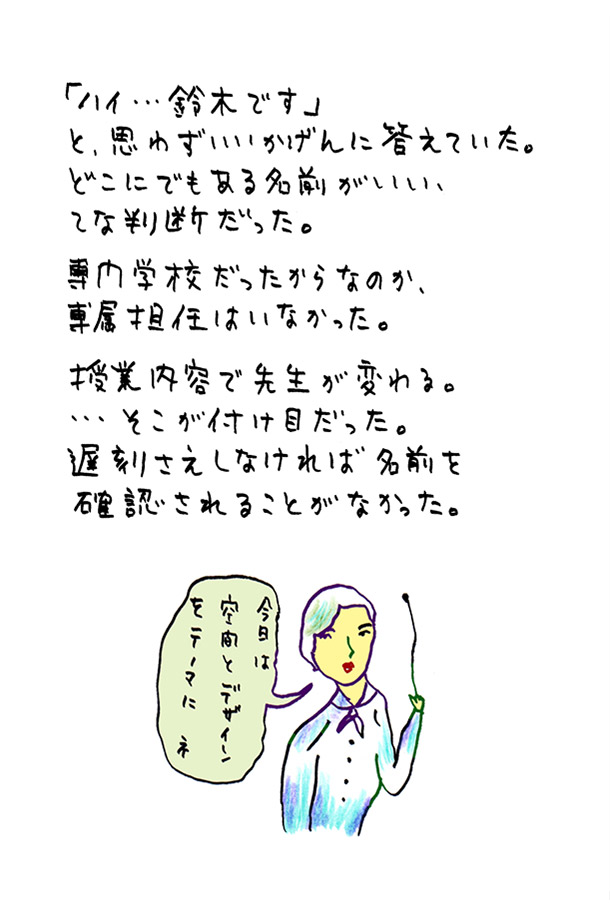 「ハイ…鈴木です」
と、思わずいいかげんに答えていた。
どこにでもある名前がいい、
てな判断だった。
専門学校だったからなのか、
専属担任はいなかった。
授業内容で先生が変わる。
…そこが付け目だった。
遅刻さえしなければ名前を
確認されることがなかった。
今日は
空間とデザイン
をテーマにネ